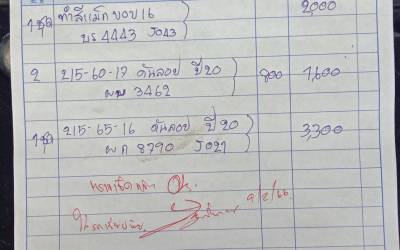 1ชุด ทำสีแม็กขอบ 16 2,000
บร 4443 J043
2 215-60-17 ดันลอป ปี 20 800 1,600
ผบ 3462
1ชุด 215-65-16 ดันลอป ปี 20 3,300
ผก 8790 J021
9/2/66